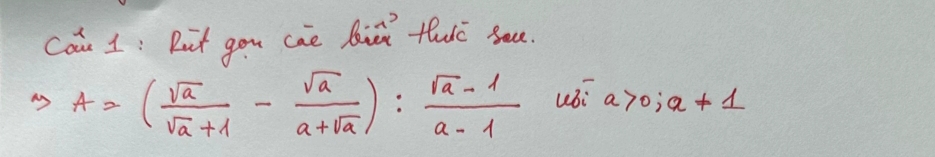 Câu 1: Rút gọn các biểu thức sau.
→ A = (√a/(√a + 1) - √a/(a + √a)) : (√a - 1)/(a - 1) với a > 0; a ≠ 1